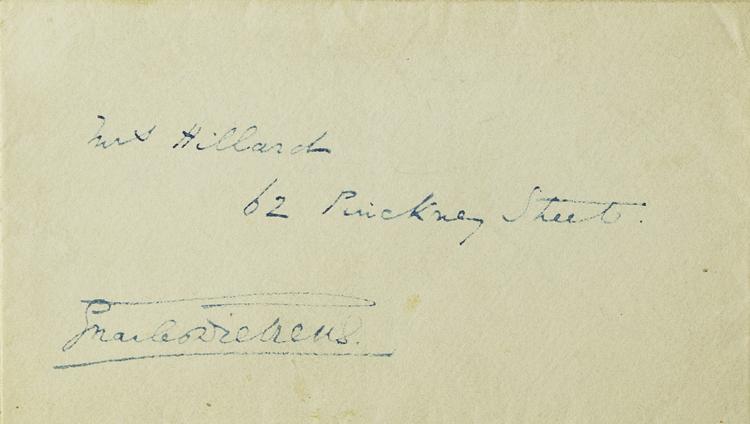 Mrs Hillard
62 Pinckney Street.
Charles Dickens.